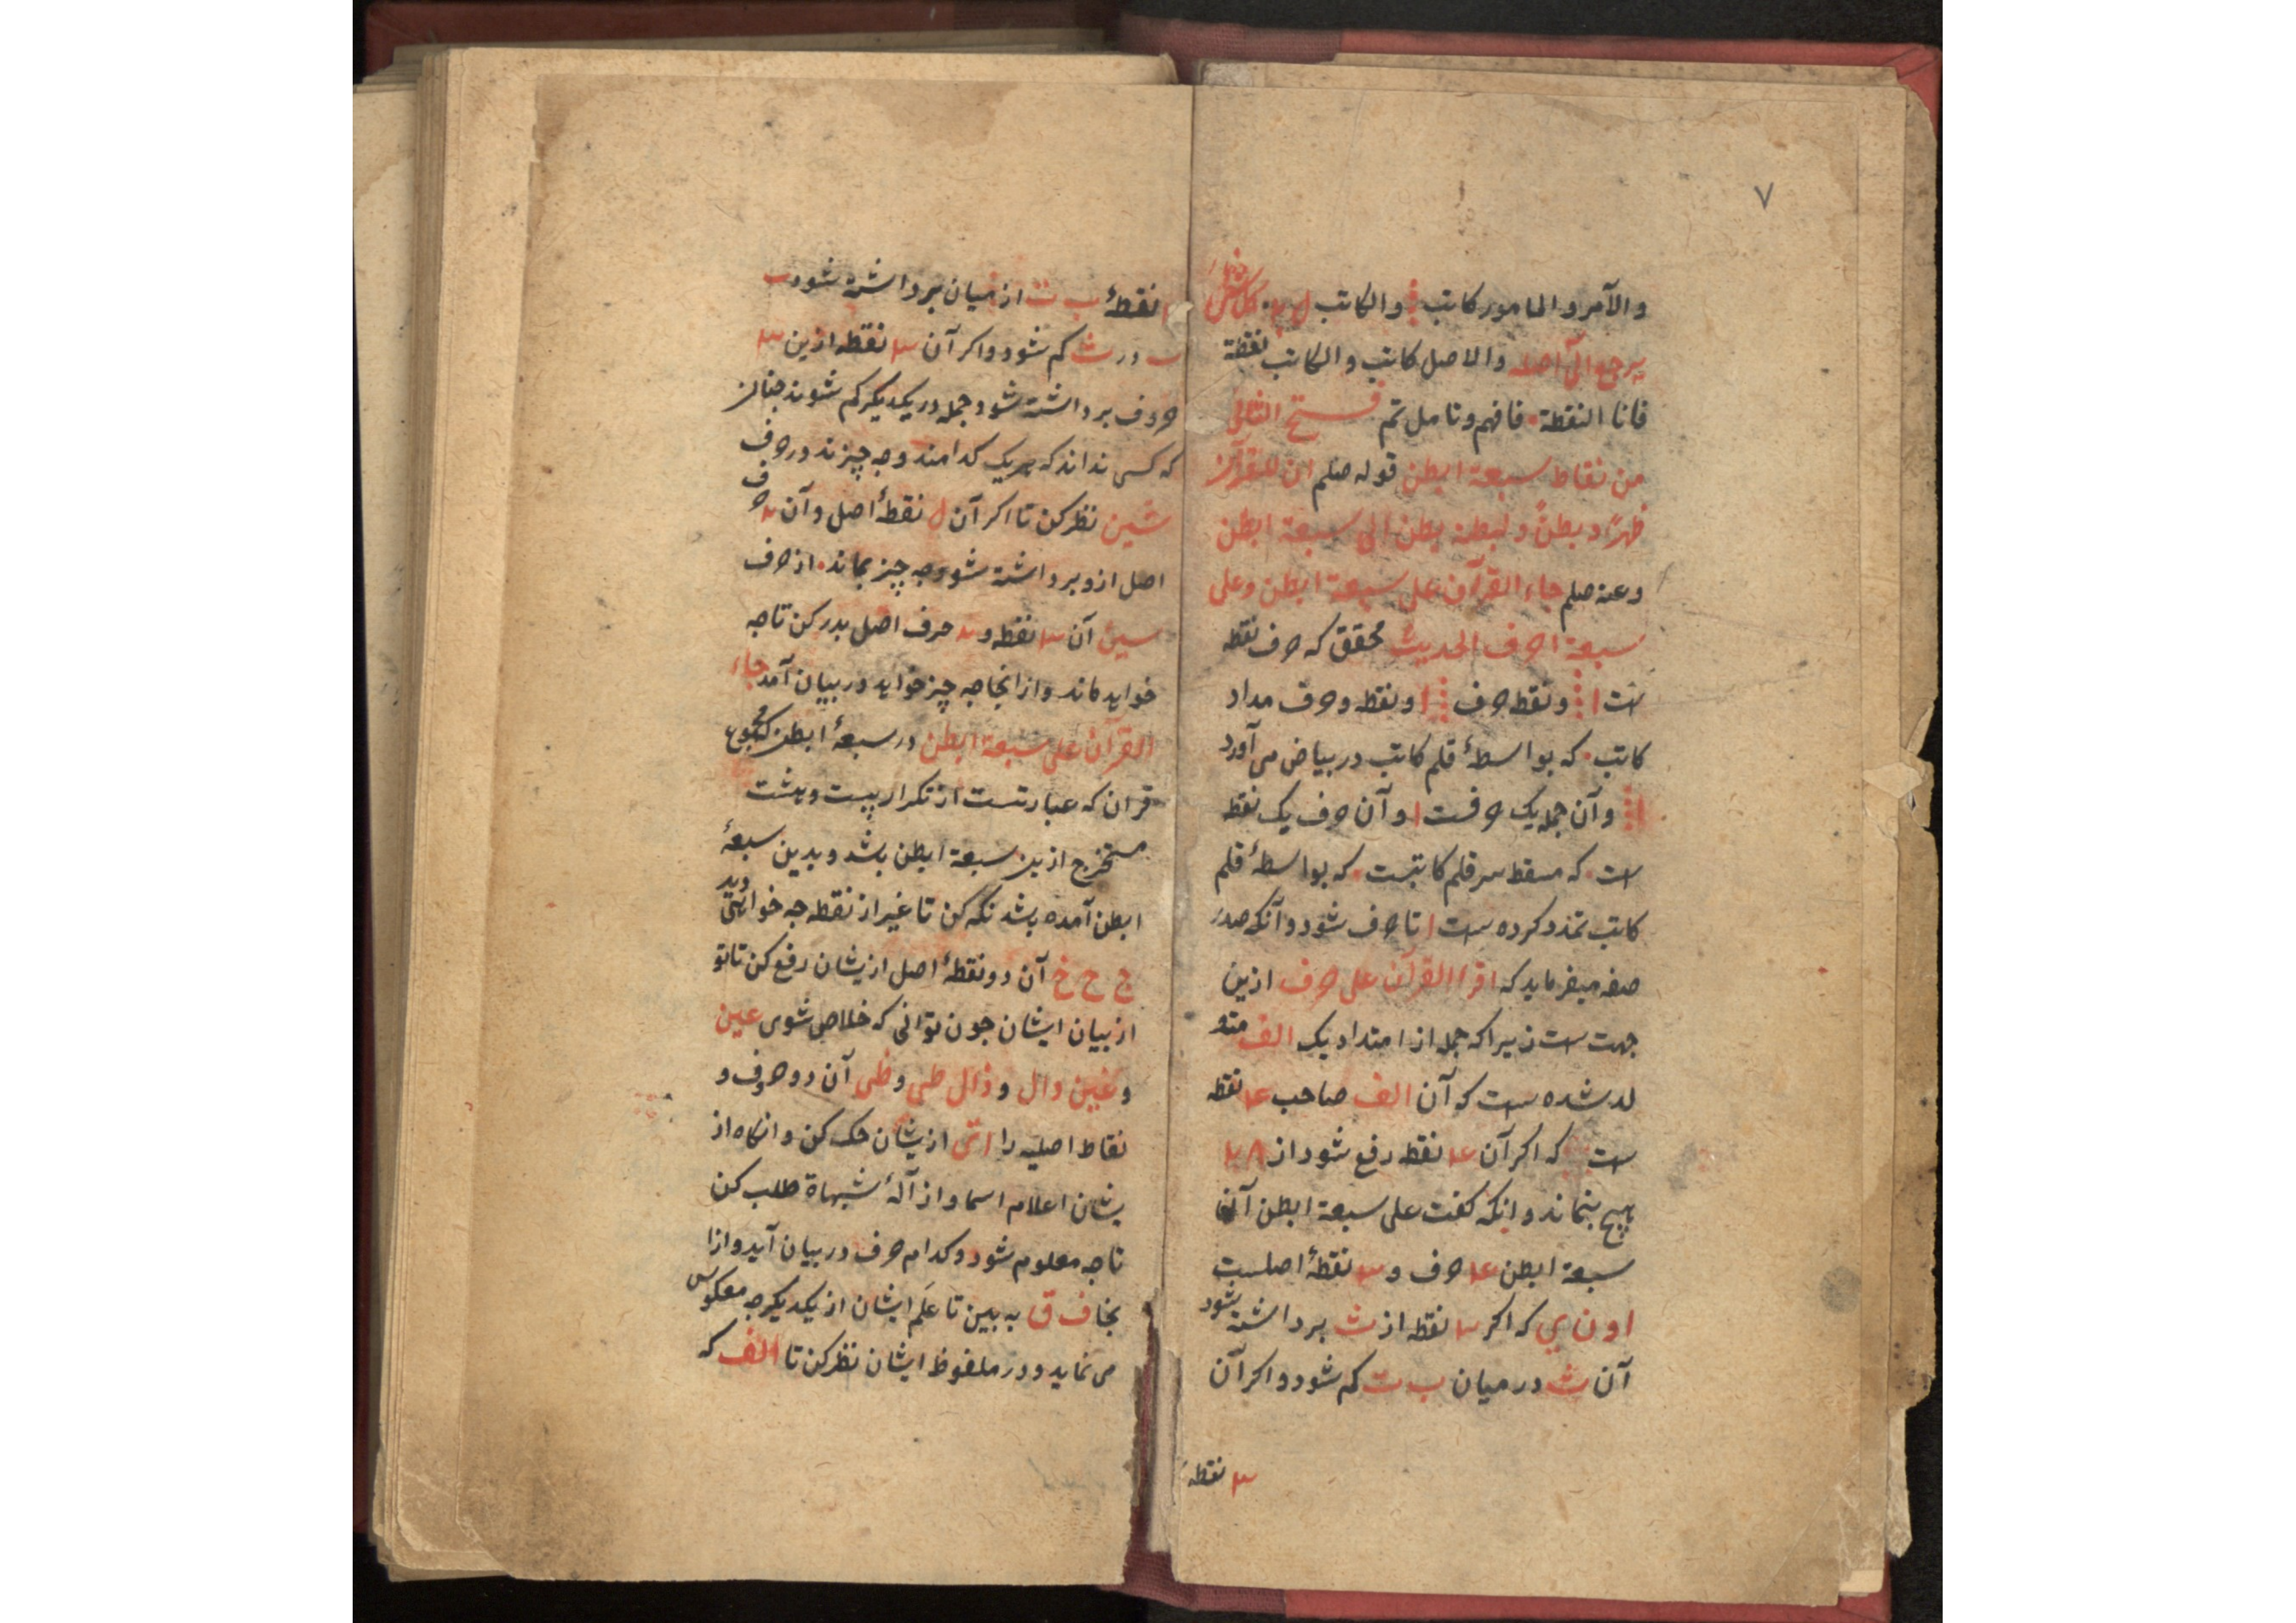 ٧
والآمر و المامور کاتب ⁝ والکاتب ل ٧٠ کل شئ
یرجع الی اصله والاصل کاتب والکاتب نقطة
فانا النقطة • فافهم وتامل تم فتح الثانی
من نقاط سبعة ابطن قوله صلم ان للقرآن
ظهرًا و بطنًا و لبطنه بطن الی سبعة ابطن
وعنه صلم جاء القرآن علی سبعة ابطن وعلی
سبعة احرف الحدیث محقق که حرف نقطه
است ا ⁝ و نقطه حرف ⁝ ا و نقطه و حرف مداد
کاتب • که بواسطهٔ قلم کاتب در بیاض می آورد
ا ⁝ و آن جمله یک حرفست ا و آن حرف یک نقطه
است • که مسقط سر قلم کاتبست • که بواسطهٔ قلم
کاتب تمدد کرده است ا تا حرف شود و آنکه صدر
صفه میفرماید که اقرا القرآن علی حرف ازین
جهت است زیرا که جمله از امتداد یک الف متو
لد شده است که آن الف صاحب ۴ نقطه
ست که اکر آن ۴ نقطه رفع شود از ٢٨
هیچ بنماند و انکه کفت علی سبعة ابطن آن
سبعة ابطن ۴ حرف و ٣ نقطهٔ اصلست
ا و ن ی که اکر ٣ نقطه از ث برداشته شود
آن ث در میان ب ت کم شود و اکر آن
٣ نقطه
ا نقطهٔ ب ت از میان برداشته شود ب
ت در ث کم شود و اکر آن ٣ نقطه ازین ٣
حروف برداشته شود جمله در یکدیکر کم شوند چنانر
که کسی نداند که هریک کدامند و چه چیزند در حرف
شین نظر کن تا اکر آن ل نقطهٔ اصل و آن ٢ حرف
اصل ازو برداشته شود چه چیز بماند • از حرف
سین آن ٣ نقطه و ٢ حرف اصل بدر کن تا چه
خواهد ماند و از انجا چه چیز خواهد در بیان آمد جاء
القرآن علی سبعة ابطن در سبعهٔ ابطن که مجموع
قران که عبارتست از تکرار بیست و هشت
مستخرج ازین سبعة ابطن باشد و بدین سبعهٔ
ابطن آمده باشد نکه کن تا غیر از نقطه چه خواهی دید
ج ح خ آن دو نقطهٔ اصل ازیشان رفع کن تا تو
از بیان ایشان چون توانی که خلاص شوی عین
و غین دال و ذال طی و ظی آن دو حروف و
نقاط اصلیه را ازیشان حک کن و انکاه از
یشان اعلام اسما و از آلهٔ شبهاة طلب کن
تا چه معلوم شود و کدام حرف در بیان آید و ازا
نجا ف ق به بین تا عَلَم ایشان از یکدیکر چه معکوس
می نماید و در ملفوظ ایشان نظر کن تا الف که